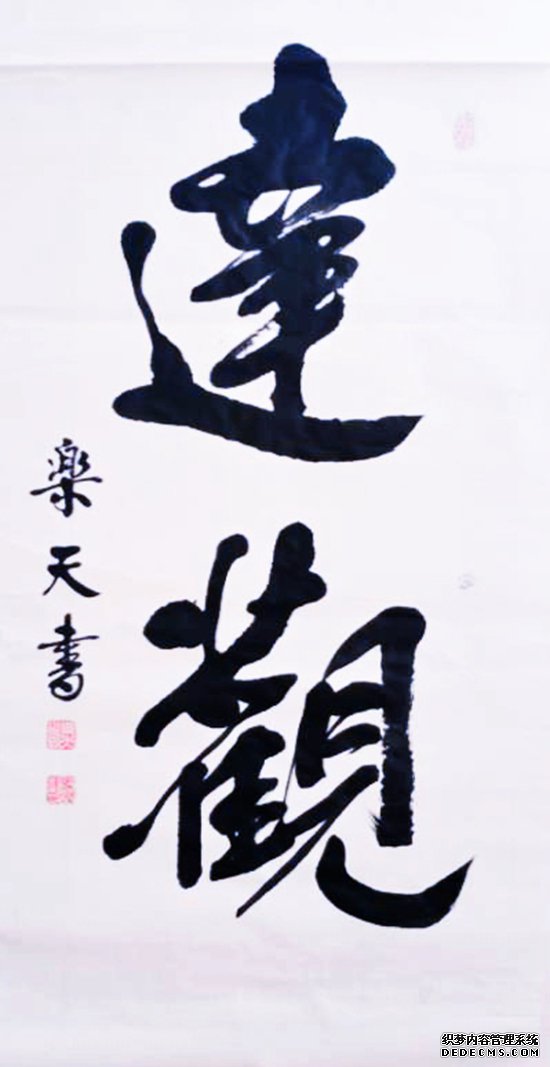 達觀
樂天書
织梦内容管理系统
DEDECMS.COM